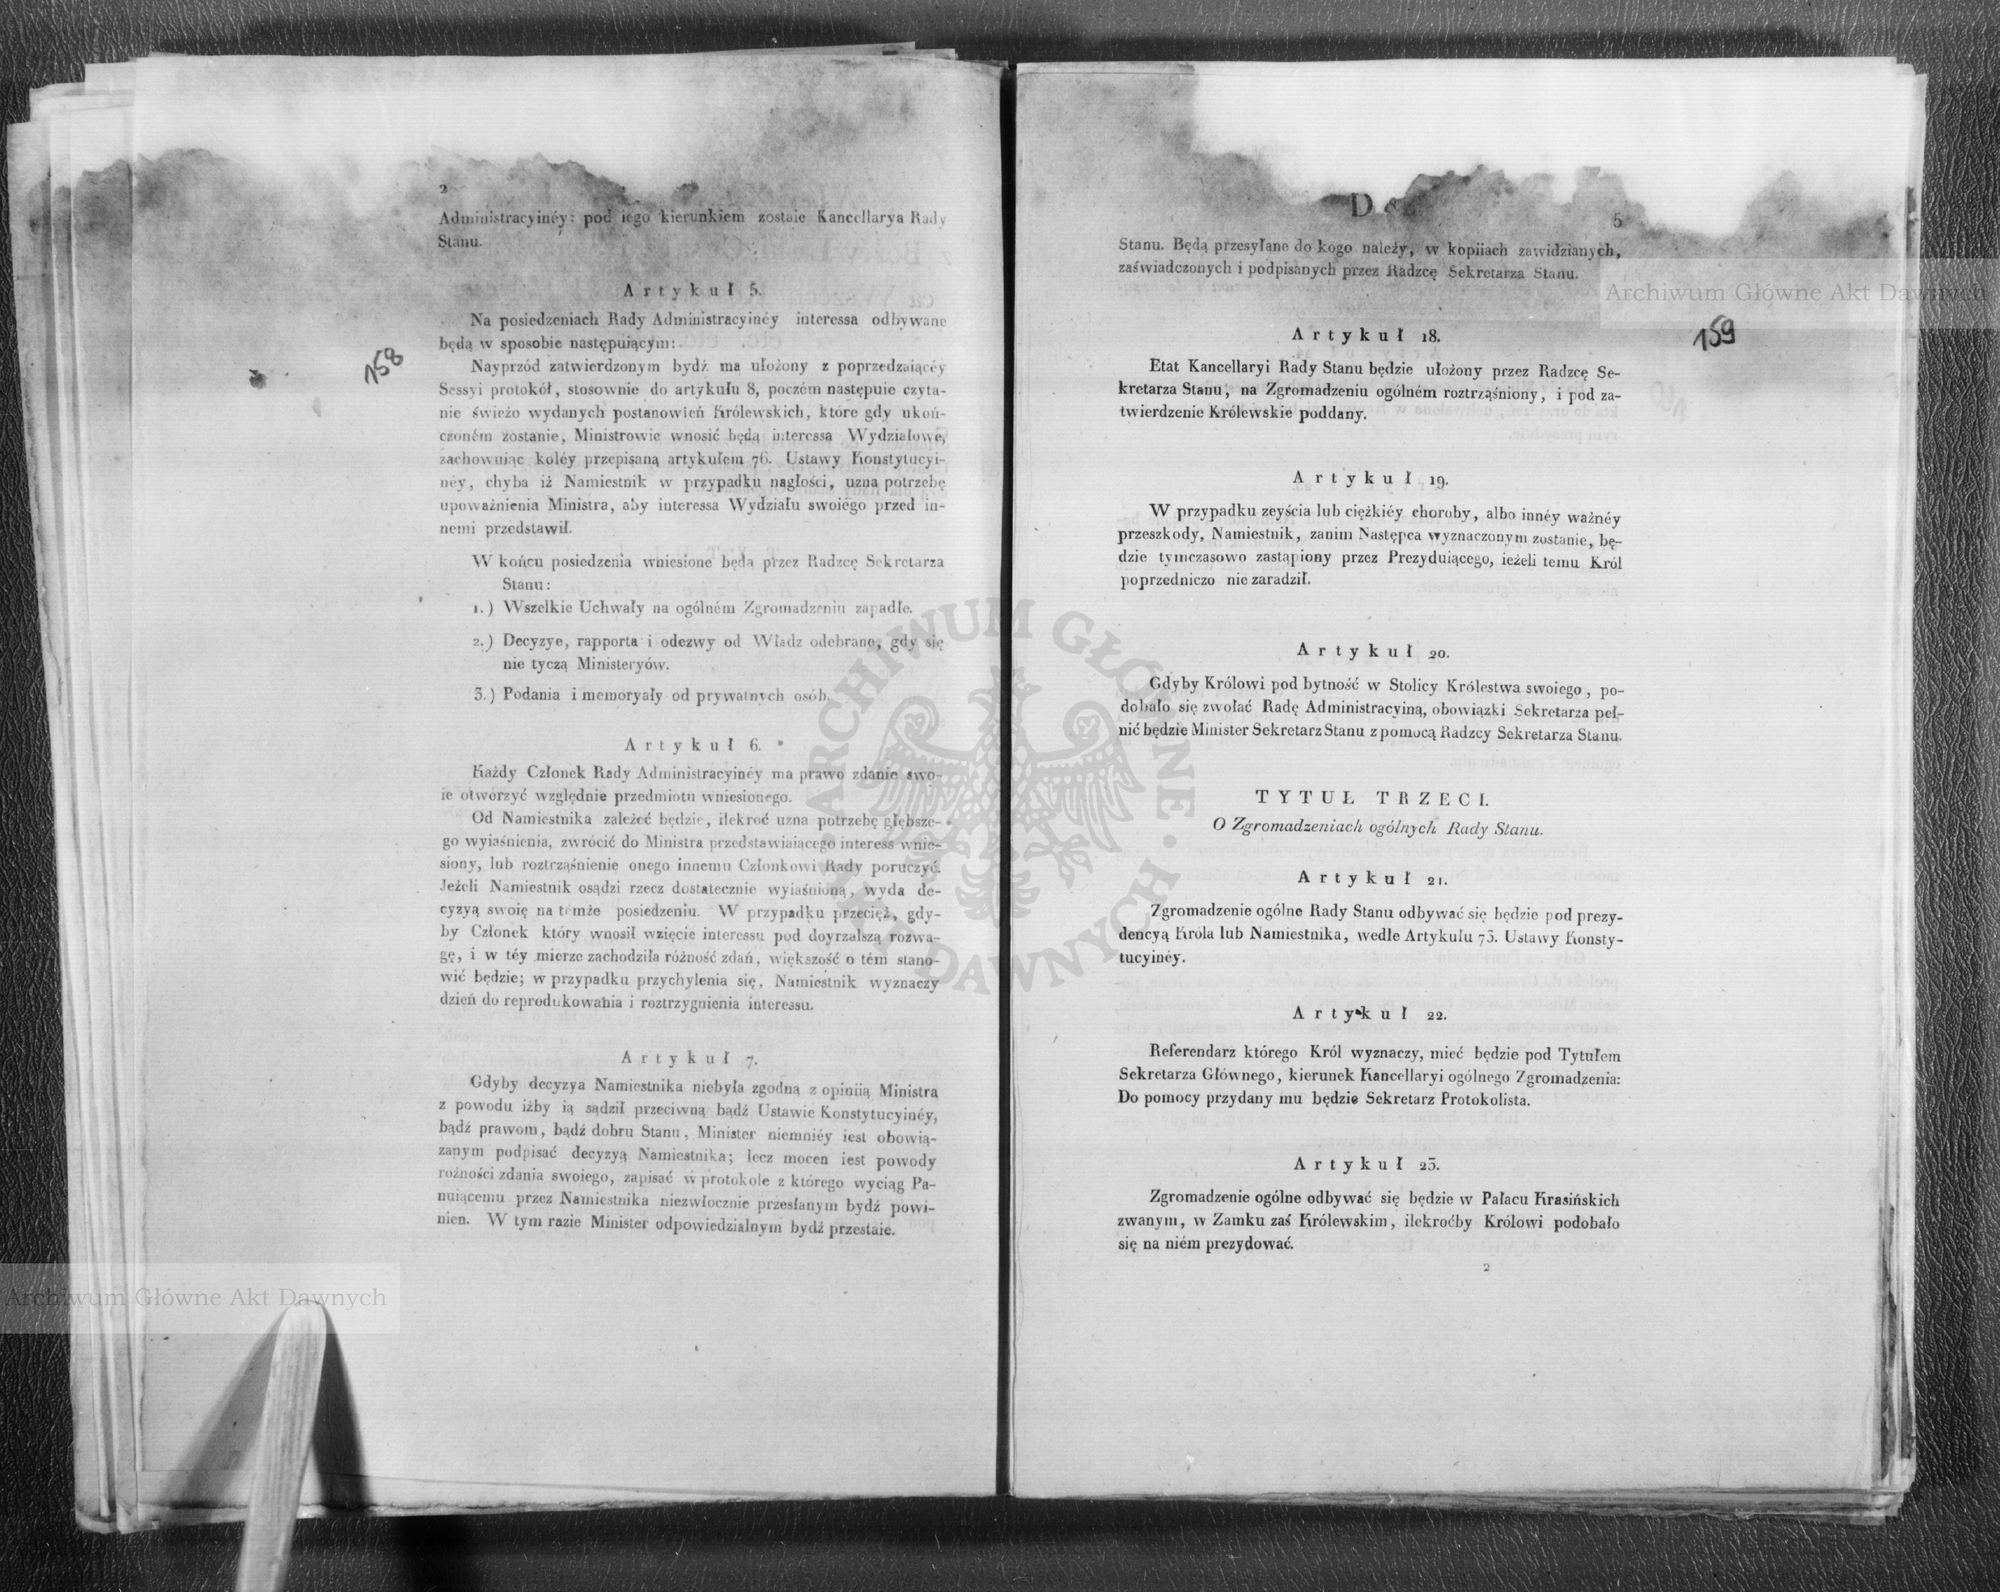 2
Administracyinéy: pod iego kierunkiem zostaie Kancellarya Rady
Stanu.
Artykuł 5.
Na posiedzeniach Rady Administracyinéy interessa odbywane
będą w sposobie następuiącym:
Nayprzód zatwierdzonym bydź ma ułożony z poprzedzaiącéy
Sessyi protokół, stosownie do artykułu 8, poczém następuie czyta-
nie świeżo wydanych postanowień Królewskich, które gdy ukoń-
czoném zostanie, Ministrowie wnosić będą interessa Wydziałowe,
zachowuiąc koléy przepisaną artykułem 76. Ustawy Konstytucyi-
néy, chyba iż Namiestnik w przypadku nagłości, uzna potrzebę
upoważnienia Ministra, aby interessa Wydziału swoiégo przed in-
nemi przedstawił.
W końcu posiedzenia wniesione będą przez Radzcę Sekretarza
Stanu:
1.) Wszelkie Uchwały na ogólném Zgromadzeniu zapadłe.
2.) Decyzye, rapporta i odezwy od Władz odebrane, gdy się
nie tyczą Ministeryów.
3.) Podania i memoryały od prywatnych osób.
Artykuł 6.
Każdy Członek Rady Administracyinéy ma prawo zdanie swo-
ie otworzyć względnie przedmiotu wniesionego.
Od Namiestnika zależeć będzie, ilekroć uzna potrzebę głębsze-
go wyiaśnienia, zwrócić do Ministra przedstawiaiącego interess wnie-
siony, lub roztrząśnienie onego innemu Członkowi Rady poruczyć.
Jeżeli Namiestnik osądzi rzecz dostatecznie wyiaśnioną, wyda de-
cyzyą swoię na témże posiedzeniu. W przypadku przecięż, gdy-
by Członek który wnosił wzięcie interessu pod doyrzalszą rozwa-
gę, i w téy mierze zachodziła różność zdań, większość o tém stano-
wić będzie; w przypadku przychylenia się, Namiestnik wyznaczy
dzień do reprodukowania i roztrzygnienia interessu.
Artykuł 7.
Gdyby decyzya Namiestnika niebyła zgodną z opiniią Ministra
z powodu iżby ią sądził przeciwną bądź Ustawie Konstytucyinéy,
bądź prawom, bądź dobru Stanu, Minister niemniéy iest obowią-
zanym podpisać decyzyą Namiestnika; lecz mocen iest powody
rożności zdania swoiego, zapisać w protokole z którego wyciąg Pa-
nuiącemu przez Namiestnika niezwłocznie przesłanym bydź powi-
nien. W tym razie Minister odpowiedzialnym bydź przestaie.
158
Archiwum Główne Akt Dawnych
5
Stanu. Będą przesyłane do kogo należy, w kopiiach zawidzianych,
zaświadczonych i podpisanych przez Radzcę Sekretarza Stanu.
Archiwum Główne Akt Dawnych
159
Artykuł 18.
Etat Kancellaryi Rady Stanu będzie ułożony przez Radzcę Se-
kretarza Stanu, na Zgromadzeniu ogólném roztrząśniony, i pod za-
twierdzenie Królewskie poddany.
Artykuł 19.
W przypadku zeyścia lub ciężkiéy choroby, albo innéy ważnéy
przeszkody, Namiestnik, zanim Następca wyznaczonym zostanie, bę-
dzie tymczasowo zastąpiony przez Prezyduiącego, ieżeli temu Król
poprzedniczo nie zaradził.
Artykuł 20.
Gdyby Królowi pod bytność w Stolicy Królestwa swoiego, po-
dobało się zwołać Radę Administracyiną, obowiązki Sekretarza peł-
nić będzie Minister Sekretarz Stanu z pomocą Radzcy Sekretarza Stanu.
TYTUŁ TRZECI.
O Zgromadzeniach ogólnych Rady Stanu.
Artykuł 21.
Zgromadzenie ogólne Rady Stanu odbywać się będzie pod prezy-
dencyą Króla lub Namiestnika, wedle Artykułu 73. Ustawy Konsty-
tucyinéy.
Artykuł 22.
Referendarz którego Król wyznaczy, mieć będzie pod Tytułem
Sekretarza Głównego, kierunek Kancellaryi ogólnego Zgromadzenia:
Do pomocy przydany mu będzie Sekretarz Protokolista.
Artykuł 23.
Zgromadzenie ogólne odbywać się będzie w Pałacu Krasińskich
zwanym, w Zamku zaś Królewskim, ilekroćby Królowi podobało
się na niém prezydować.
2
ARCHIWUM GŁÓWNE · AKT DAWNYCH ·